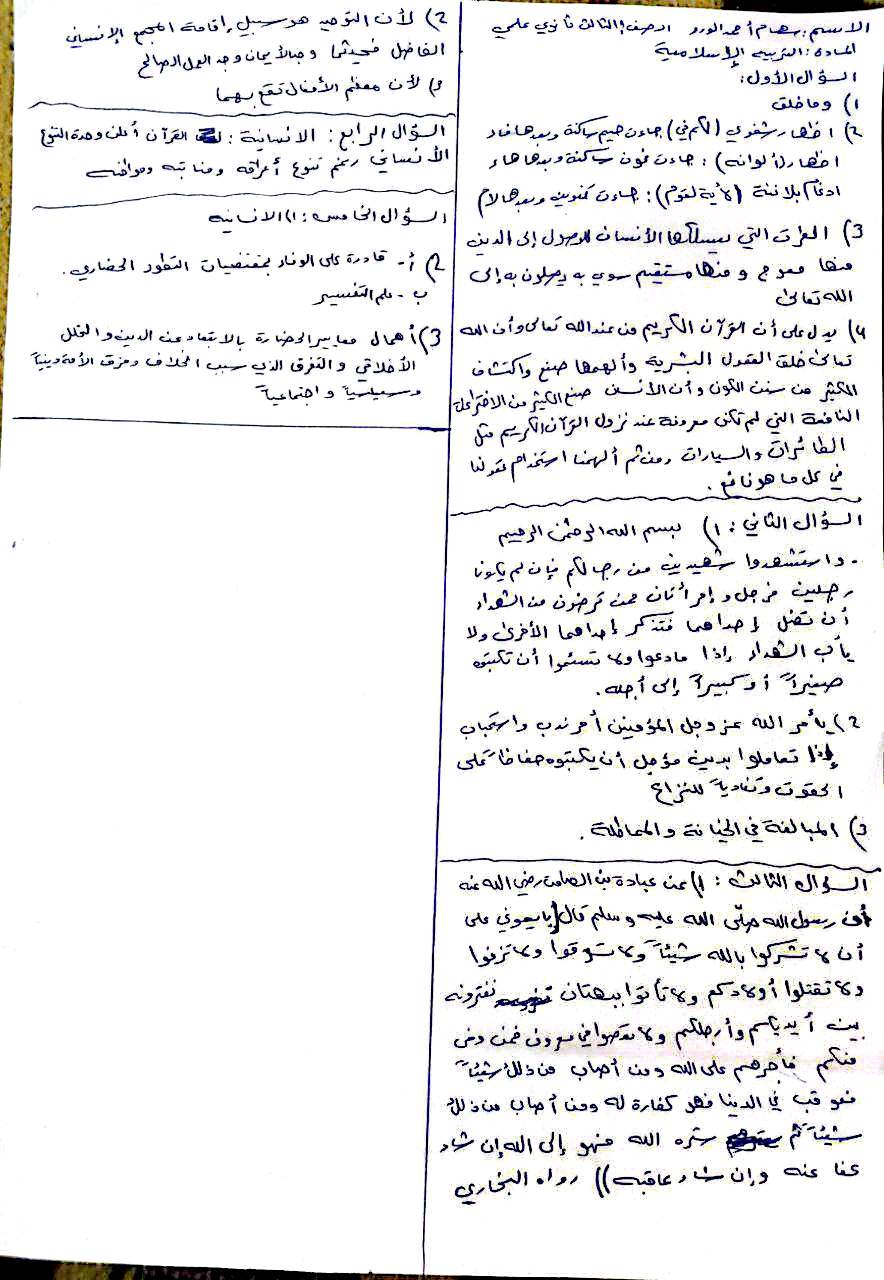 الاسم: سهام أحمد الورو الصف: الثالث ثانوي علمي
المادة: التربية الإسلامية
السؤال الأول:
1) وما خلق
2) اظهار شفوي (لكم في) جاءت ميم ساكنة وبعدها فاء
اظهار (ألوانه): جاءت نون ساكنة وبعدها هاء
ادغام بلا غنة (لآية لقوم): جاءت تنوين وبعدها لام
3) الطرق التي يسلكها الأنسان للوصول إلى الدين
منها معوج و منها مستقيم سوي به يصلون به إلى
الله تعالى
4) يدل على أن القرآن الكريم من عند الله تعالى وأن الله
تعالى خلق العقول البشرية وألهمها صنع واكتشاف
الكثير من سنن الكون وأن الأنسان صنع الكثير من الاختراعات
النافعة التي لم تكن معروفة عند نزول القرآن الكريم مثل
الطائرات والسيارات ومن ثم ألهمنا استخدام عقولنا
في كل ما هو نافع.
السؤال الثاني: 1) بسم الله الرحمن الرحيم
- واستشهدوا شهيدين من رجالكم فإن لم يكونا
رجلين فرجل وإمرأتان ممن ترضون من الشهداء
أن تضل إحداهما فتذكر إحداهما الأخرى ولا
يأب الشهداء إذا ما دعوا ولا تسئموا أن تكتبوه
صغيراً أو كبيراً إلى أجله.
2) يأمر الله عز وجل المؤمنين أمر ندب واستحباب
إذا تعاملوا بدين مؤجل أن يكتبوه حفاظاً على
الحقوق وتفادياً للنزاع
3) المبالغة في الخيانة والمماطلة.
السؤال الثالث: 1) عن عبادة بن الصامت رضي الله عنه
أن رسول الله صلّى الله عليه وسلم قال بايعوني على
أن لا تشركوا بالله شيئاً ولا تسرقوا ولا تزنوا
ولا تقتلوا أولادكم ولا تأتوا ببهتان تفترونه
بين أيديكم وأرجلكم ولا تعصوا في معروف فمن وفى
منكم فأجرهم على الله ومن أصاب من ذلك شيئاً
فعوقب في الدنيا فهو كفارة له ومن أصاب من ذلك
شيئاً ثم ستره الله فهو إلى الله إن شاء
عفا عنه وإن شاء عاقبه)) رواه البخاري
2) لأن التوحيد هو سبيل إقامة المجتمع الإنساني
الفاضل فحيثما وجد الأيمان وجد العمل الصالح
3) لأن معظم الأفعال تقع بهما
السؤال الرابع: الانسانية: القرآن أعلن وحدة النوع
الأنساني رغم تنوع أعراقه ومنابته ومواطنه
السؤال الخامس: 1) الانسانية
2) أ- قادرة على الوفاء بمقتضيات التطور الحضاري.
ب- علم التفسير
3) أهمال معايير الحضارة بالابتعاد عن الدين والخلل
الأخلاقي و التفرق الذي سبب الخلاف ومزق الأمة دينياً
وسياسياً واجتماعياً